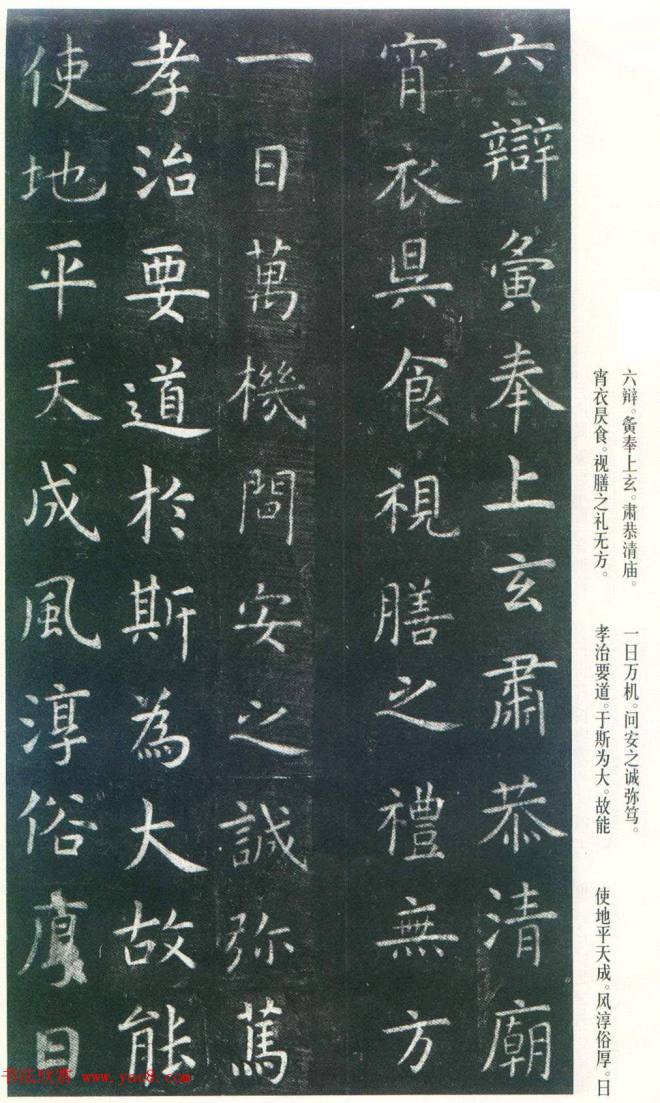 六辩。夤奉上玄。肃恭清庙。
宵衣昃食。视膳之礼无方。
一日万机。问安之诚弥笃。
孝治要道。于斯为大。故能
使地平天成。风淳俗厚。日
六辯夤奉上玄肅恭清廟
宵衣昃食視膳之禮無方
一日萬機問安之誠弥篤
孝治要道於斯為大故能
使地平天成風淳俗厚日
书法欣赏 www.yac8.com